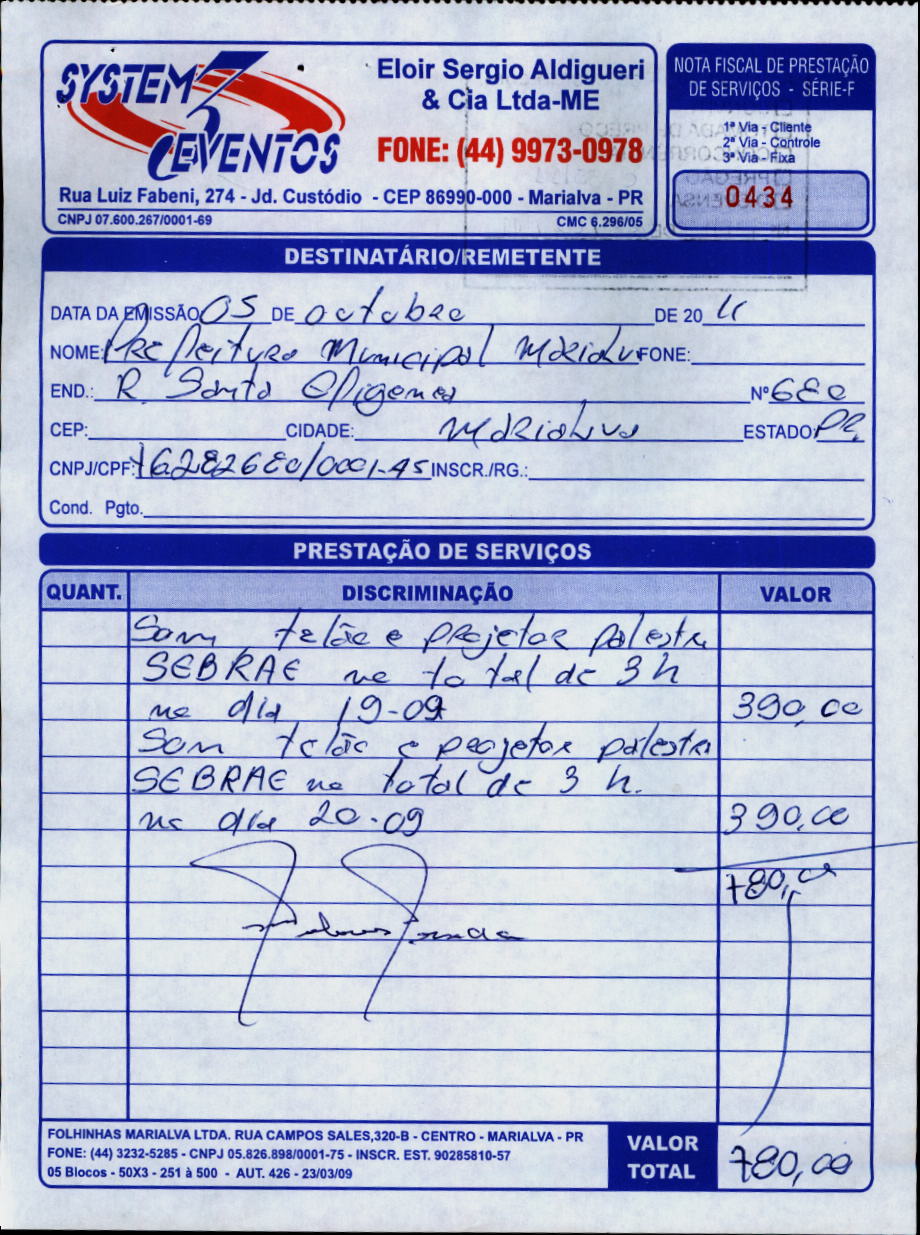 SYSTEM 3 EVENTOS
Eloir Sergio Aldigueri
& Cia Ltda-ME
FONE: (44) 9973-0978
Rua Luiz Fabeni, 274 - Jd. Custódio - CEP 86990-000 - Marialva - PR
CNPJ 07.600.267/0001-69 CMC 6.296/05
NOTA FISCAL DE PRESTAÇÃO
DE SERVIÇOS - SÉRIE-F
1ª Via - Cliente
2ª Via - Controle
3ª Via - Fixa
0434
DESTINATÁRIO/REMETENTE
DATA DA EMISSÃO 05 DE outubro DE 20 11
NOME: Prefeitura Municipal Marialva FONE:
END.: R. Santa Efigenea Nº 680
CEP: CIDADE: Marialva ESTADO: PR.
CNPJ/CPF: 76282680/0001-45 INSCR./RG.:
Cond. Pgto.
PRESTAÇÃO DE SERVIÇOS
QUANT. DISCRIMINAÇÃO VALOR
Som, telão e projetor palestra
SEBRAE no total de 3 h
no dia 19-09 390,00
Som telão e projetor palestra
SEBRAE no total de 3 h.
no dia 20-09 390,00
780,00
FOLHINHAS MARIALVA LTDA. RUA CAMPOS SALES,320-B - CENTRO - MARIALVA - PR
FONE: (44) 3232-5285 - CNPJ 05.826.898/0001-75 - INSCR. EST. 90285810-57
05 Blocos - 50X3 - 251 à 500 - AUT. 426 - 23/03/09
VALOR
TOTAL 780,00